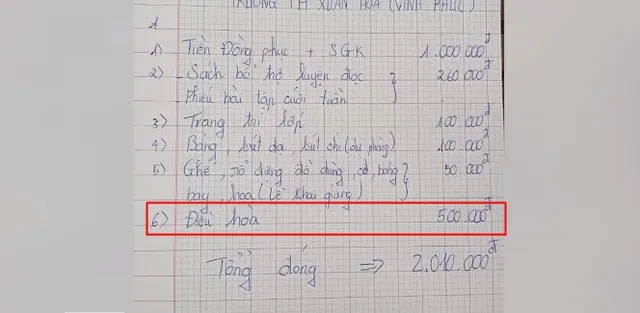 TRƯỜNG TH XUÂN HÒA (VĨNH PHÚC)
1) Tiền Đồng phục + SGK 1.000.000đ
2) Sách bổ trợ luyện đọc 260.000đ
Phiếu bài tập cuối tuần
3) Trang trí lớp 100.000đ
4) Bảng, bút dạ, bút chì (dự phòng) 100.000đ
5) Ghế, rổ đựng đồ dùng, cờ, bóng 50.000đ
bay, hoa (Lễ Khai giảng)
6) Điều hòa 500.000đ
Tổng đóng => 2.010.000đ